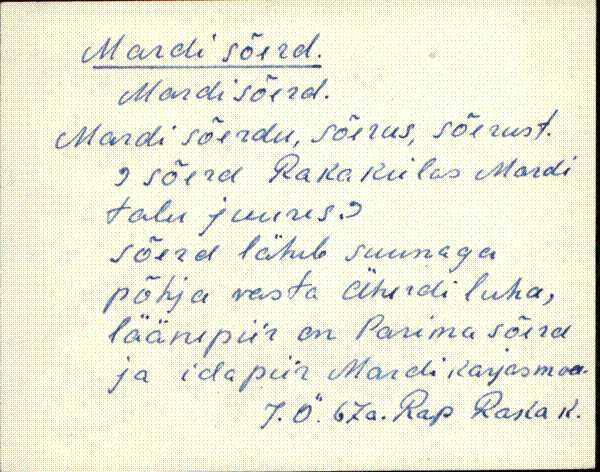 Mardi sõerd.
Mardi sõerd.
Mardi sõerdu, sõerus, sõerust.
? sõerd Raka külas Mardi
talu juures?
sõerd läheb suunaga
põhja vasta Äherdi luha,
läänepiir on Parima sõerd
ja idapiir Mardi karjasmaa.
J. Ö. 67a. Rap Raka k.